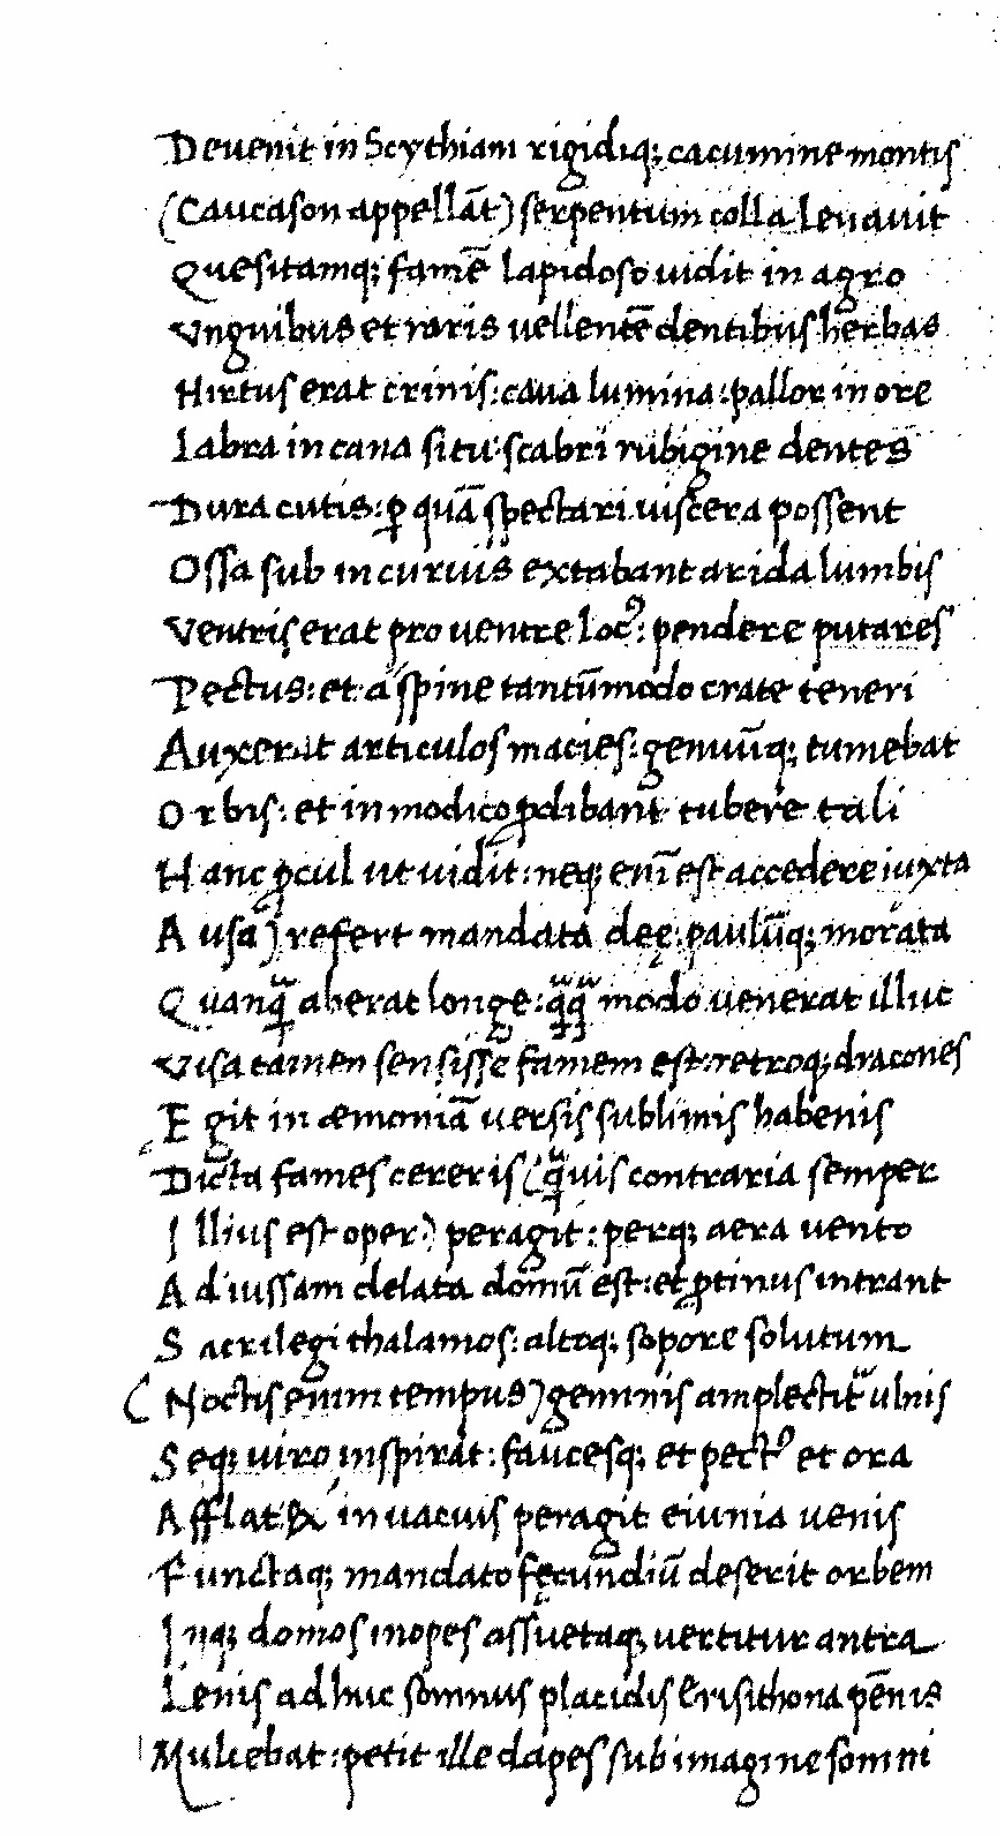 Deuenit in Scythiam rigidiq; cacumine montis
(Caucason appellāt) serpentum colla leuauit
Quesitamq; famē lapidoso uidit in agro
Vnguibus et raris uellentē dentibus herbas
Hirtus erat crinis: caua lumina: pallor in ore
Labra in cana situ: scabri rubigine dentes
Dura cutis: ꝑ quā spectari uiscera possent
Ossa sub incuruis extabant arida lumbis
Ventris erat pro uentre locꝰ: pendere putares
Pectus: et a spine tantūmodo crate teneri
Auxerat articulos macies: genuūq; tumebat
Orbis: et inmodico ꝓdibant tubere tali
Hanc ꝓcul ut uidit: neq; enī est accedere iuxta
Ausa) refert mandata deę: paulūq; morata
Quanqᷓ aberat longe: qᷓqᷓ modo uenerat illuc
Visa tamen sensisse famem est: retroq; dracones
Egit in æmoniā uersis sublimis habenis
Dicta fames cereris (qᷓuis contraria semper
Illius est oper) peragit: perq; aera uento
Ad iussam delata domū est: et ꝓtinus intrant
Sacrilegi thalamos: altoq; sopore solutum
(Noctis enim tempus) geminis amplectitᷓ ulnis
Seq; uiro inspirat: faucesq; et pectꝰ et ora
Afflat & in uacuis peragit eiunia uenis
Functaq; mandato fęcundiū deserit orbem
Inq; domos inopes assuetaq; uertitur antra
Lenis adhuc somnus placidis Erisithona pēnis
Mulcebat: petit ille dapes sub imagine somni